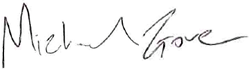 Michael Gove